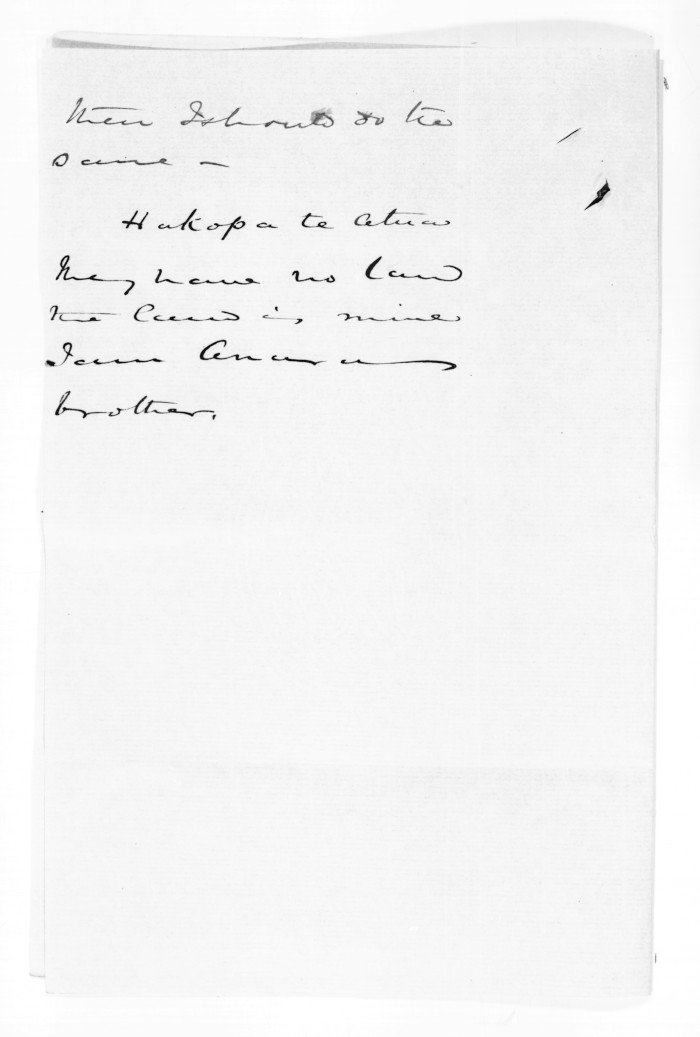 then I should do the
same –
Hakopa te Atua
They have no land
the land is mine
I am
brother.